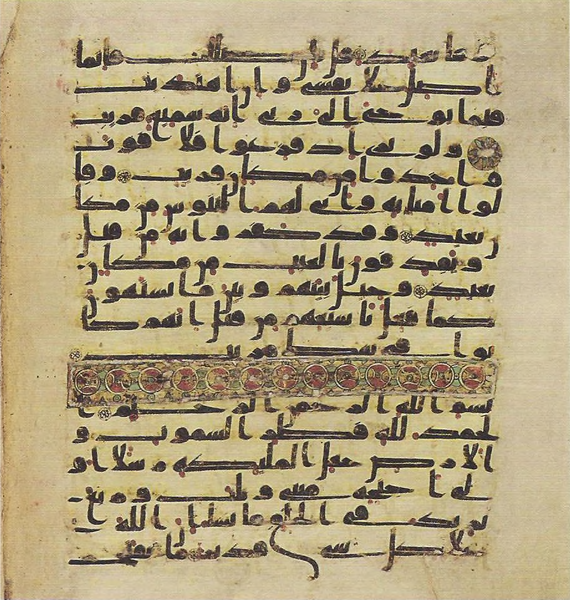 وما يعيد قل ان ضللت فانما
اضل على نفسي وان اهتديت
فبما يوحي الي ربي انه سميع قريب
ولو ترى اذ فزعوا فلا فوت
واخذوا من مكان قريب وقا
لوا امنا به وانى لهم التناوش من مكا
ن بعيد وقد كفروا به من قبل
ويقذفون بالغيب من مكان
بعيد وحيل بينهم وبين ما يشتهون
كما فعل باشياعهم من قبل انهم كا
نوا في شك مريب
بسم الله الرحمن الرحيم ا
لحمد لله فطر السموت و
الارض جعل الملئكة رسلا او
لي اجنحة مثنى وثلث وربع
يزيد في الخلق ما يشا ان الله ع
لى كل شي قدير ما يفتح